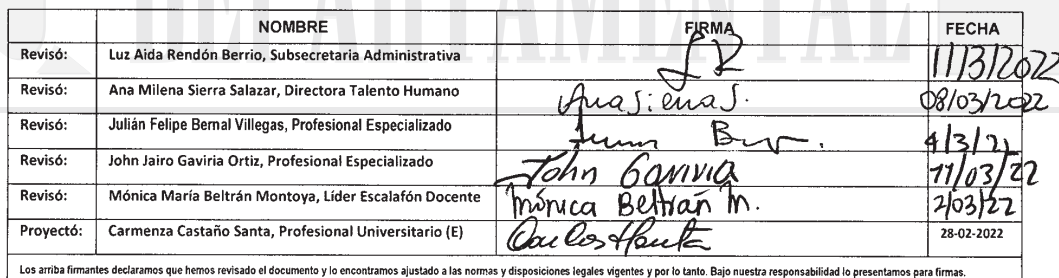 DEPARTAMENTAL
NOMBRE FIRMA FECHA
Revisó: Luz Aida Rendón Berrio, Subsecretaria Administrativa 11/3/2022
Revisó: Ana Milena Sierra Salazar, Directora Talento Humano Ana Sierra S. 08/03/2022
Revisó: Julián Felipe Bernal Villegas, Profesional Especializado 4/3/22
Revisó: John Jairo Gaviria Ortiz, Profesional Especializado John Gaviria 11/03/22
Revisó: Mónica María Beltrán Montoya, Líder Escalafón Docente Mónica Beltrán M. 2/03/22
Proyectó: Carmenza Castaño Santa, Profesional Universitario (E) 28-02-2022
Los arriba firmantes declaramos que hemos revisado el documento y lo encontramos ajustado a las normas y disposiciones legales vigentes y por lo tanto. Bajo nuestra responsabilidad lo presentamos para firmas.